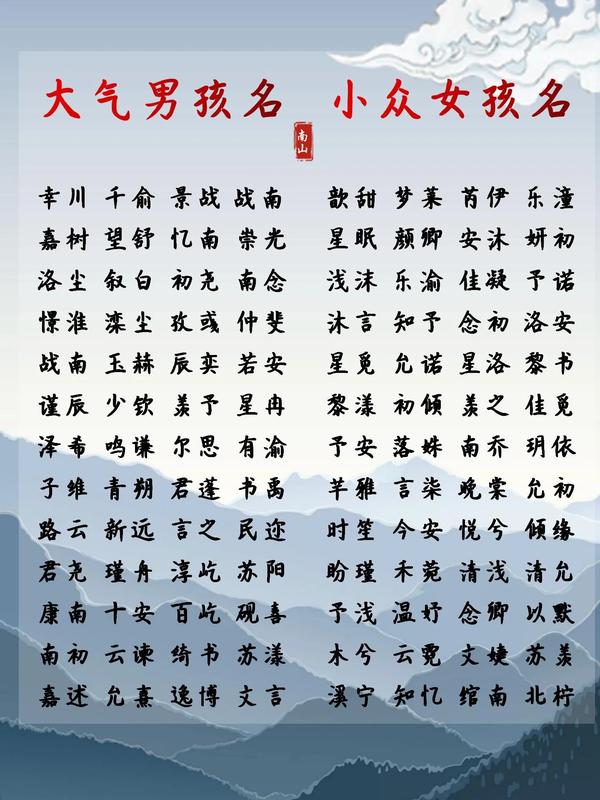 大气男孩名 小众女孩名
南山
幸川 千俞 景战 战南 歆甜 梦莱 芮伊 乐潼
嘉树 望舒 忆南 崇光 星眠 颜卿 安沐 妍初
洛尘 叙白 初尧 南念 浅沫 乐渝 佳凝 予诺
憬淮 滦尘 孜彧 仲斐 沐言 知予 念初 洛安
战南 玉赫 辰奕 若安 星觅 允诺 星洛 黎书
谨辰 少钦 羡予 星冉 黎漾 初倾 羡之 佳觅
泽希 鸣谦 尔思 有渝 予安 落姝 南乔 玥依
子维 青朔 君蓬 书禹 芊雅 言柒 晚棠 允初
路云 新远 言之 民迩 时笙 今安 悦兮 倾缘
君尧 瑾舟 淳屹 苏阳 盼瑾 禾菀 清浅 清允
康南 十安 百屹 砚喜 予浅 温妤 念卿 以默
南初 云谏 绮书 苏漾 木兮 云霓 文婕 苏羡
嘉述 允熹 逸博 文言 溪宁 知忆 绾南 北柠